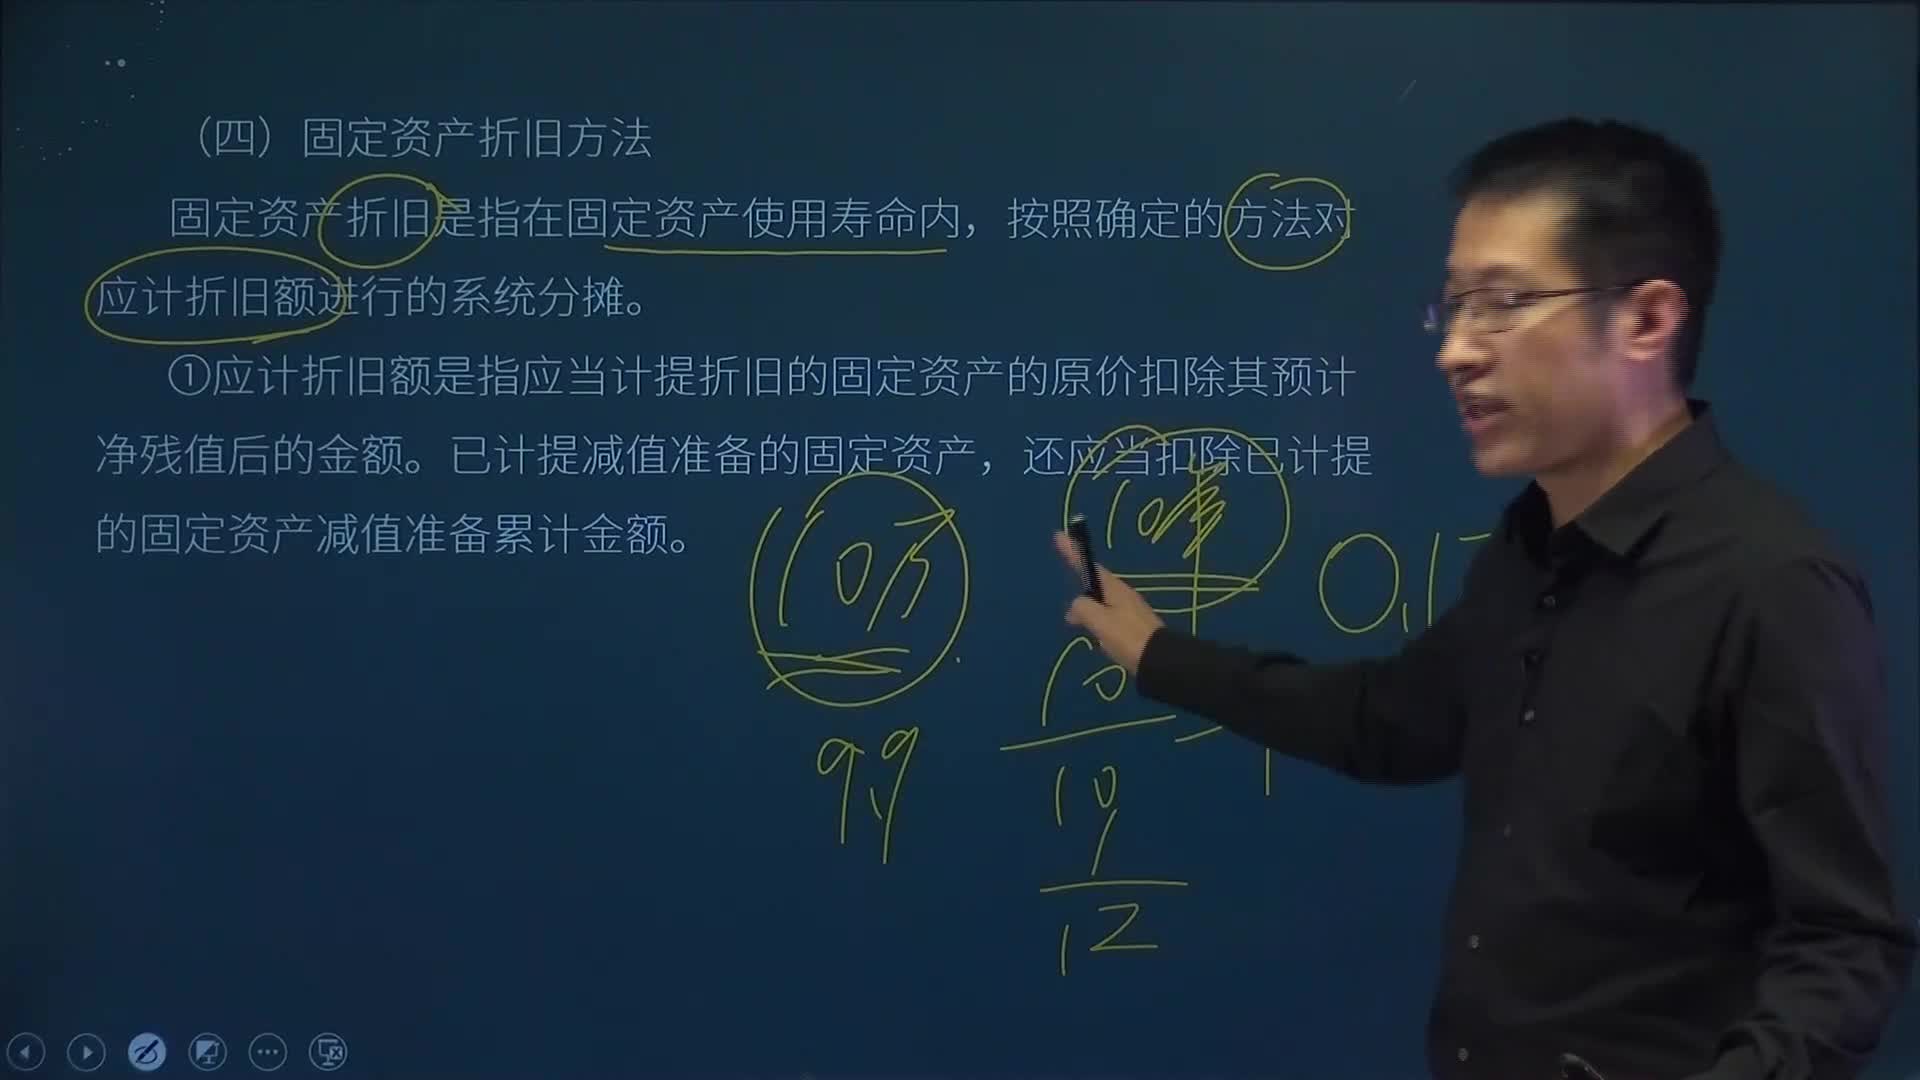 （四）固定资产折旧方法
固定资产折旧是指在固定资产使用寿命内，按照确定的方法对
应计折旧额进行的系统分摊。
①应计折旧额是指应当计提折旧的固定资产的原价扣除其预计
净残值后的金额。已计提减值准备的固定资产，还应当扣除已计提
的固定资产减值准备累计金额。
10万
10年
0.1
10
10
12
9.9